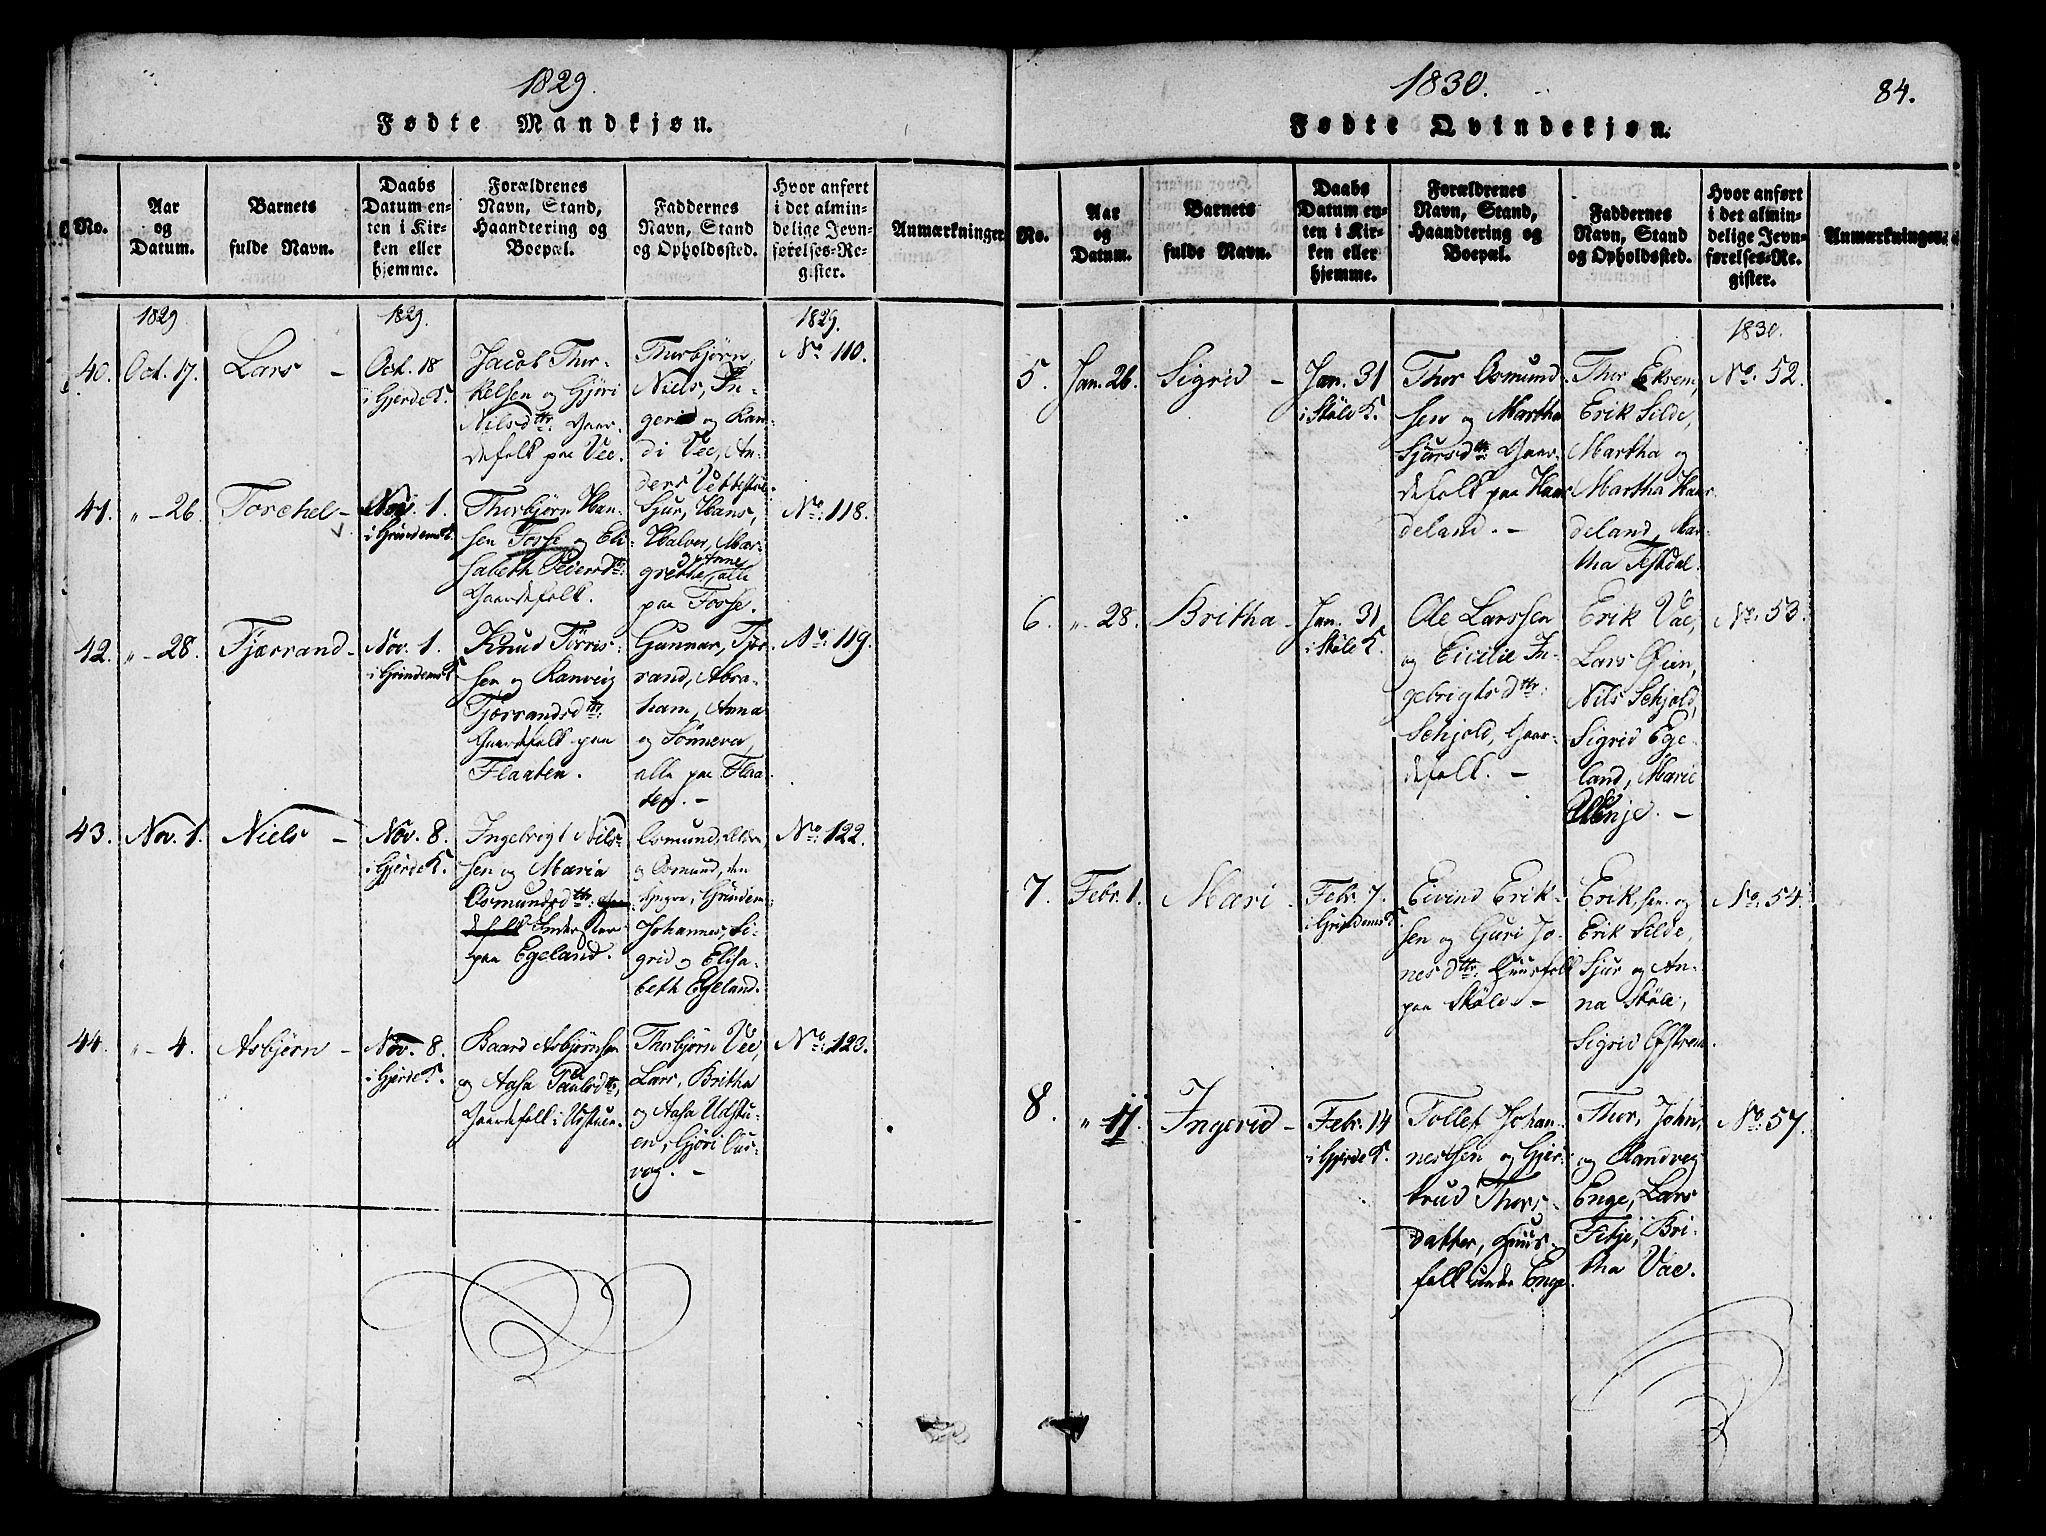 1829.
Fødte Mandkjøn.
No.
Aar
og
Datum.
Barnets
fulde Navn.
Daabs
Datum en-
ten i Kir-
ken eller
hjemme.
Forældrenes
Navn, Stand,
Haandtering og
Boepæl.
Faddernes
Navn, Stand
og Opholdssted.
Hvor anført
i det almin-
delige Jevn-
førelses-Re-
gister.
Anmærkninger
1829
1829.
1829.
40.
Oct. 17.
Lars -
Oct. 18
i Gjerde K.
Jacob Thor-
kelsen og Gjøri
Nilsdtr. Gaar-
defolk paa Vee.
Thorbjørn,
Niels, In-
gerid og Ran-
di Vee, An-
ders Vettestøl.
No. 110.
41.
" - 26.
Torchel -
Nov. 1.
i Grindems K.
Thorbjørn Han-
sen Fosse og Eli-
sabeth Pedersdtr:
Gaardefolk.
Sjur, Hans,
Halvor, Mar-
grethe og Anne alle
paa Fosse.
No: 118.
42.
" - 28.
Tjærrand -
Nov. 1.
i Grindems K.
Knud Tørris-
sen og Ranveig
Tjærrandsdtr:
Gaardefolk paa
Flaaten.
Gunnar, Tjær-
rand, Abra-
ham, Anna
og Sønneva,
alle paa Flaa-
ten. -
No: 119.
43.
Nov. 1.
Niels -
Nov. 8.
i Gjerde K.
Ingebrigt Nils-
sen og Maria
Osmundsdtr:
paa Egeland.
Osmund, ældre
og Osmund, den
yngre, Grindem,
Johannes, Si-
grid og Elisa-
beth Egeland.
No: 122.
44.
" - 4.
Asbjørn -
Nov. 8.
i Gjerde K.
Baard Asbjørnsen
og Aasa Paulsdtr,
Gaardefolk i Udstuen.
Thorbjørn Vee,
Lars, Britha
og Aasa Udstu-
en, Gjøri Aus-
vog. -
No: 123.
1830.
84.
Fødte Qvindekjøn.
No.
Aar
og
Datum.
Barnets
fulde Navn.
Daabs
Datum en-
ten i Kir-
ken eller
hjemme.
Forældrenes
Navn, Stand,
Haandtering og
Boepæl.
Faddernes
Navn, Stand
og Opholdssted.
Hvor anført
i det almin-
delige Jevn-
førelses-Re-
gister.
Anmærkninger.
1830.
5.
Jan. 26.
Sigrid -
Jan. 31
i Skøle K.
Thor Osmund-
sen og Martha
Sjursdtr: Gaar-
defolk paa Haar-
deland. -
Thor Ekrem,
Erik Silde,
Martha og
Martha Haar-
deland, Mar-
tha Fiskdal.
No. 52.
6.
" 28.
Britha -
Jan. 31
i Skøle K.
Ole Larssen
og Cicilie In-
gebrigtsdtr:
Schjold, Gaar-
defolk. -
Erik Vae,
Lars Øien,
Nils Schjold,
Sigrid Ege-
land, Marie
No: 53.
7.
Febr. 1.
Mari -
Febr. 7.
i Grindems K.
Eivind Erik-
sen og Guri Jo-
nesdtr: Huusfolk
paa Skøle -
Erik, sen. og
Erik Silde,
Sjur og An-
na Skøle,
Sigrid Østrem.
No. 54.
8.
" 11.
Ingerid -
Febr. 14
i Gjerde K.
Tollef Johan-
nessen og Gjer-
trud Thors-
datter, Huus-
folk under Enge.
Thor, John,
og Randveg
Enge, Lars
Fitje, Bri-
tha Vae.
No: 57.